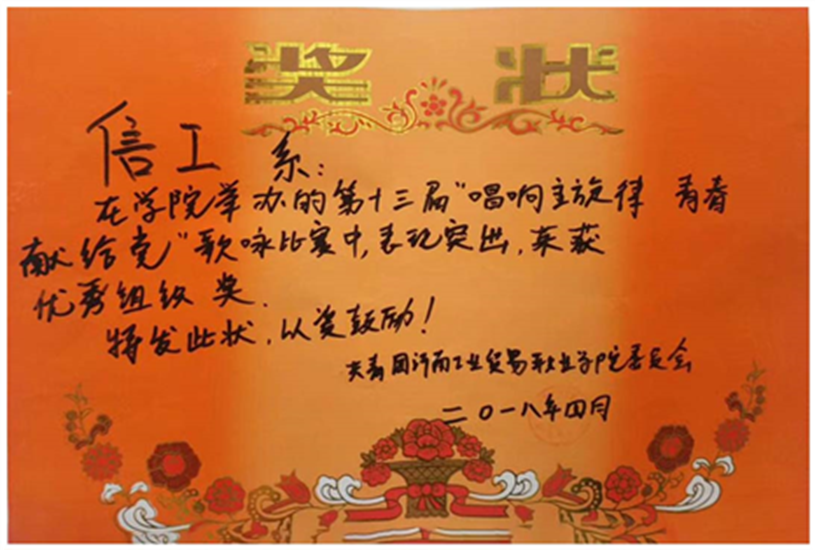 奖状
信工 系:
在学院举办的第十三届"唱响主旋律 青春
献给党"歌咏比赛中,表现突出,荣获
优秀组织 奖.
特发此状,以资鼓励!
共青团河南工业贸易职业学院委员会
二〇一八年四月